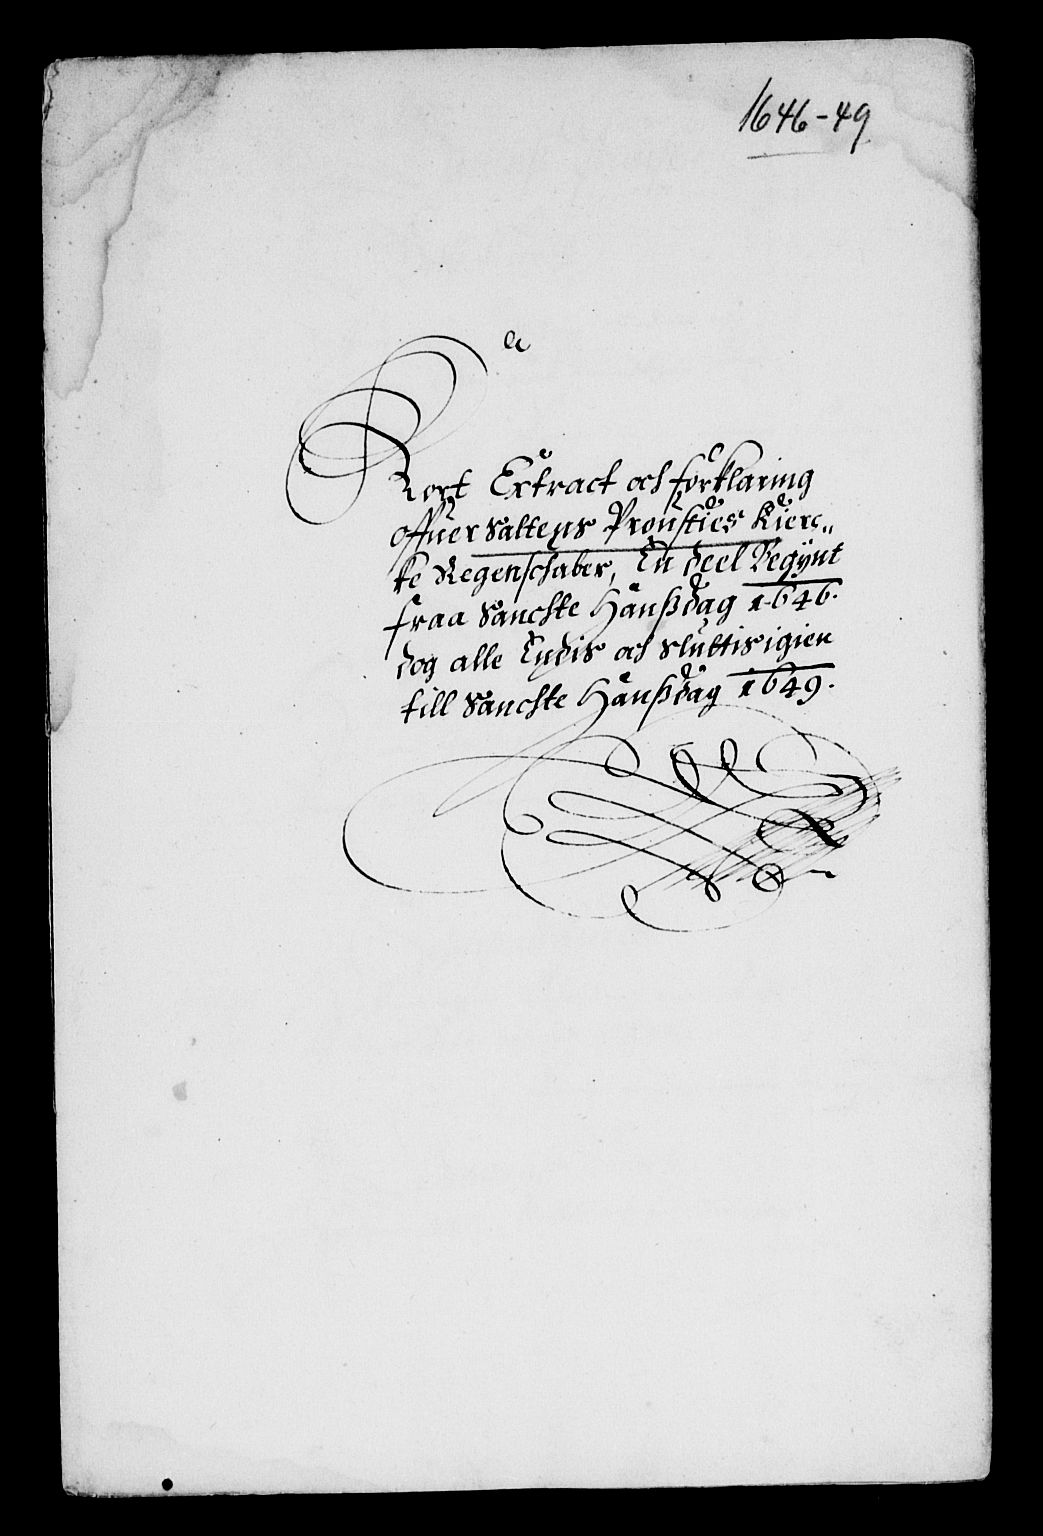 1646-49
Kort Extract och forklaring
offuer Saltens Prousties Kierc,,
ke Regenschaber, En deel Begynt
fraa Sanchte Hanßdag 1646.
dog alle Endis och sluttis igien
till Sanchte Hanßdag 1649.